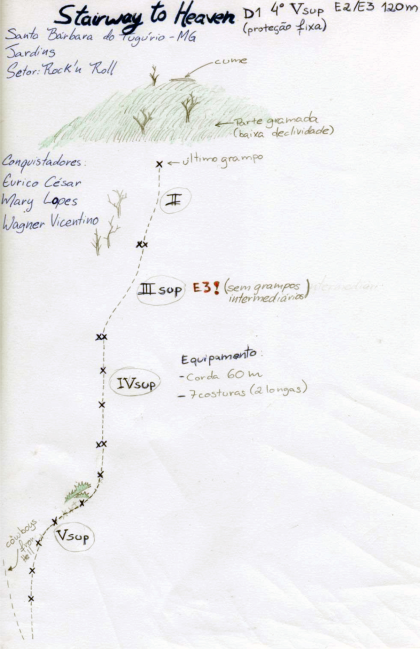 Stairway to Heaven D1 4º Vsup E2/E3 120m
(proteção fixa)
Santo Bárbara do Tugúrio - MG
Jardins
Setor: Rock'n Roll
cume
Parte gramada
(baixa declividade)
Conquistadores:
Eurico César
Mary Lopes
Wagner Vicentino
último grampo
II
IIIsup E3! (sem grampos
intermediários)
Equipamento:
- Corda 60 m
- 7 costuras (2 longas)
IVsup
Vsup
cowboys
from
Hell